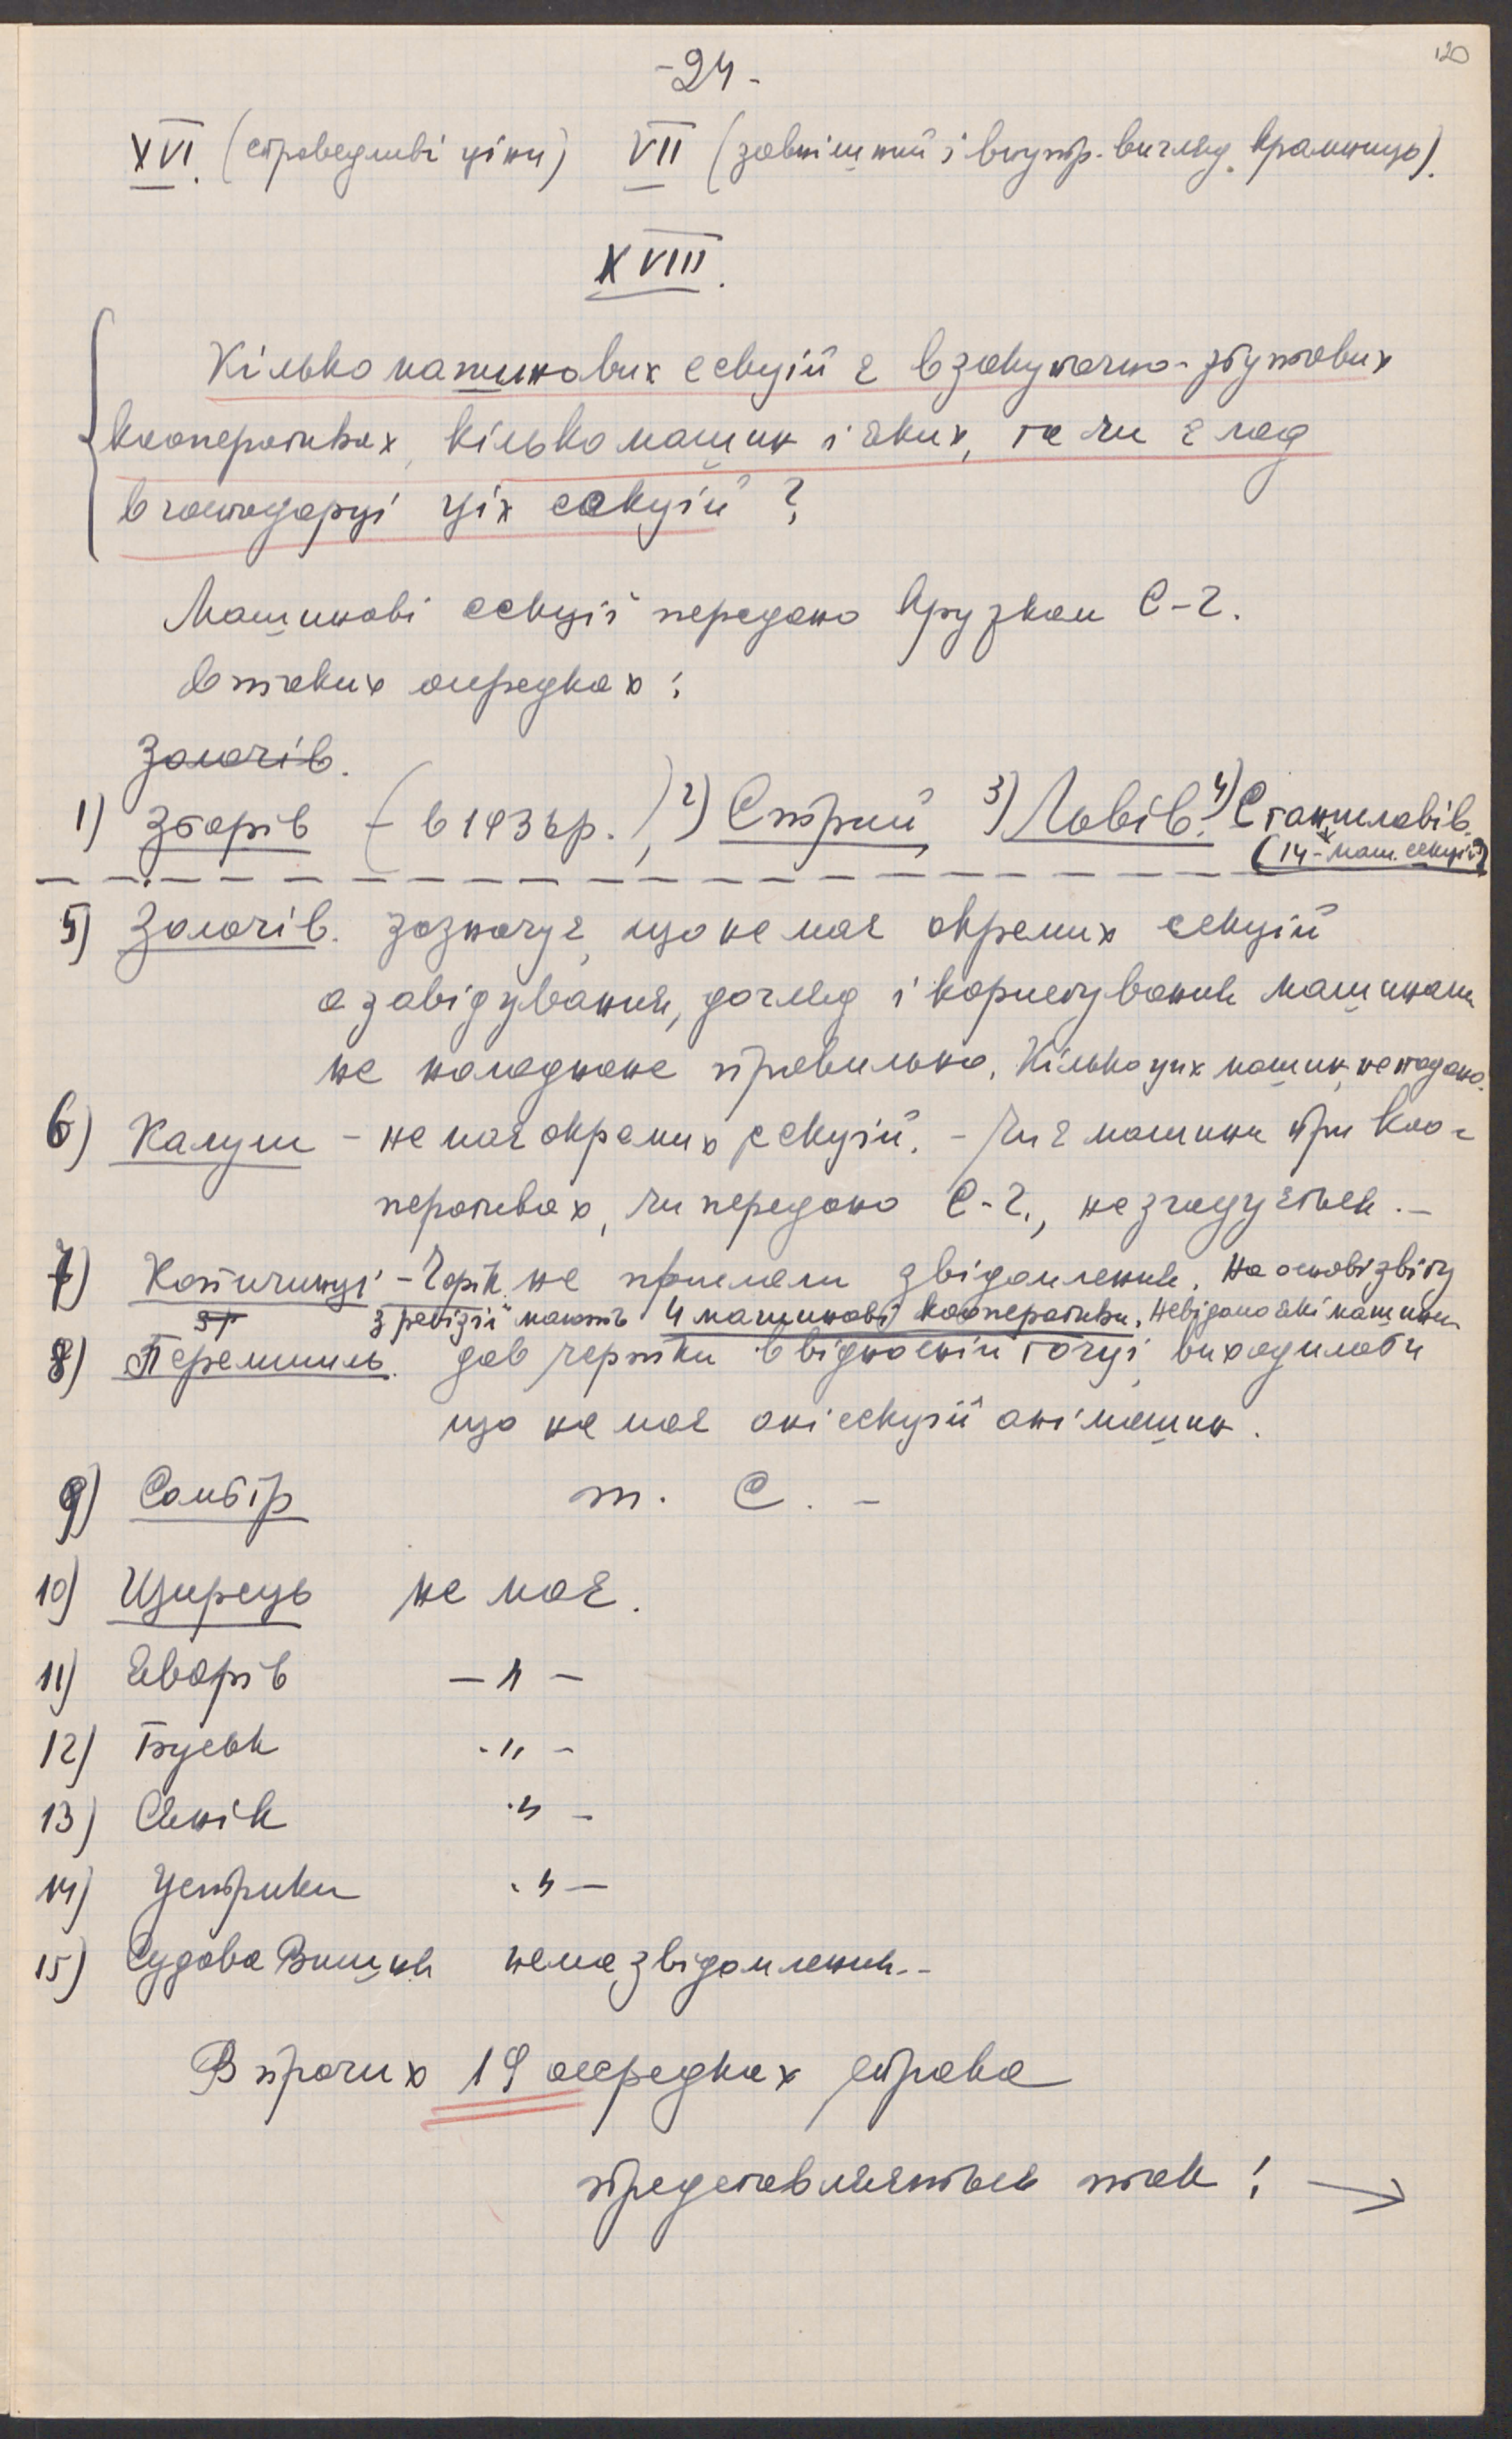 120
-24-
XVI. (справедливі ціни) VII (зовнішний і внутр. вигляд крамниць).
XVIII.
Кілько машинових секцій є в закупочно-збутових
кооперативах, кілько машин і яких, та чи є лад
в господарці ціх секцій?
Машинові секції передано кружкам С-Г.
в таких осередках:
Золочів.
1) Зборів (- в 1936 р.), 2) Стрий, 3) Львів. 4) Станиславів.
(14 - маш. секцій)
5) Золочів. зазначує, що не має окремих секцій
а завідування, догляд і користування машинами
не наладнане правильно. Кілько цих машин, не подано.
6) Калуш - не має окремих секцій. - Чи є машини при коо-
перативах, чи передано С-Г., не згадується. -
7) Копичинці - Чортк. не прислали звідомлення. На основі звіту
з ревізії мають 4 машинові кооперативи. Невідомо які машини
8) Перемишль. дав чертки в відносній точці, виходило би
що не має ані секцій ані машин.
9) Самбір т. С. -
10) Щирець не має.
11) Яворів - " -
12) Буськ - " -
13) Сянік - " -
14) Устрики - " -
15) Судова Вишня нема звідомлення. -
В прочих 19 осередках справа
представляється так: →